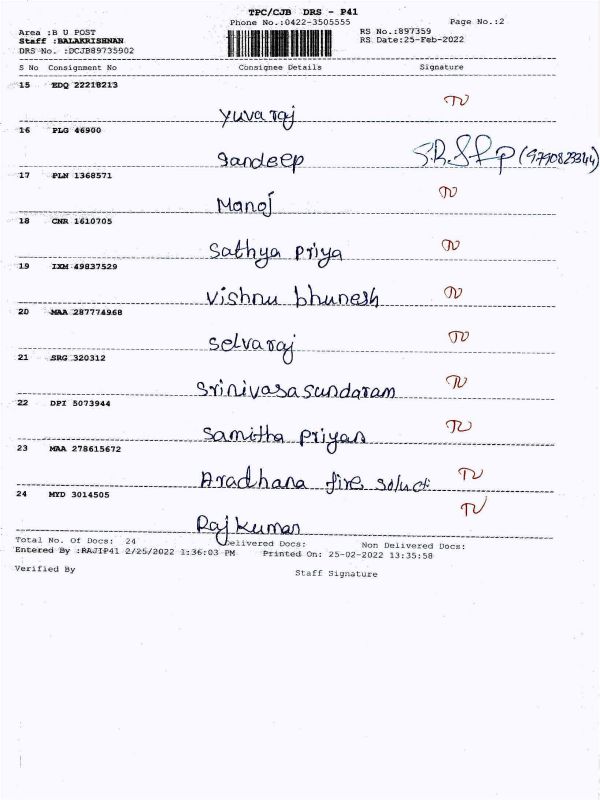 TPC/CJB DRS - P41
Phone No.:0422-3505555 Page No.:2
Area :B U POST RS No.:897359
Staff :BALAKRISHNAN RS Date:25-Feb-2022
DRS No. :DCJB89735902
S No Consignment No Consignee Details Signature
15 EDQ 22218213
Yuvaraj
16 PLG 46900
Sandeep (9790823344)
17 PLN 1368571
Manoj
18 CNR 1610705
Sathya Priya
19 IXM 49837529
Vishnu bhunesh
20 MAA 287774968
Selvaraj
21 SRG 320312
Srinivasasundaram
22 DPI 5073944
Samitha Priyan
23 MAA 278615672
Aradhana fire soluct
24 MYD 3014505
Rajkumar
Total No. Of Docs: 24 Delivered Docs: Non Delivered Docs:
Entered By :RAJIP41 2/25/2022 1:36:03 PM Printed On: 25-02-2022 13:35:58
Verified By Staff Signature